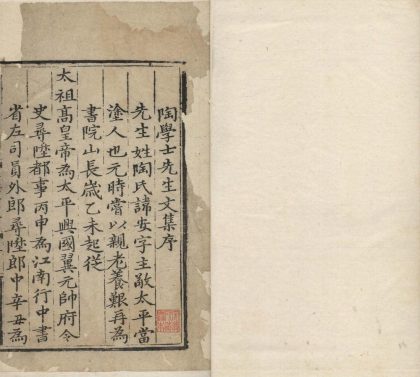 陶學士先生文集序
先生姓陶氏諱安字主敬太平當
塗人也元時嘗以親老養艱再為
書院山長歳乙未起從
太祖高皇帝為太平興國翼元帥府令
史尋陞都事丙申為江南行中書
省左司員外郎尋陞郎中辛丑為